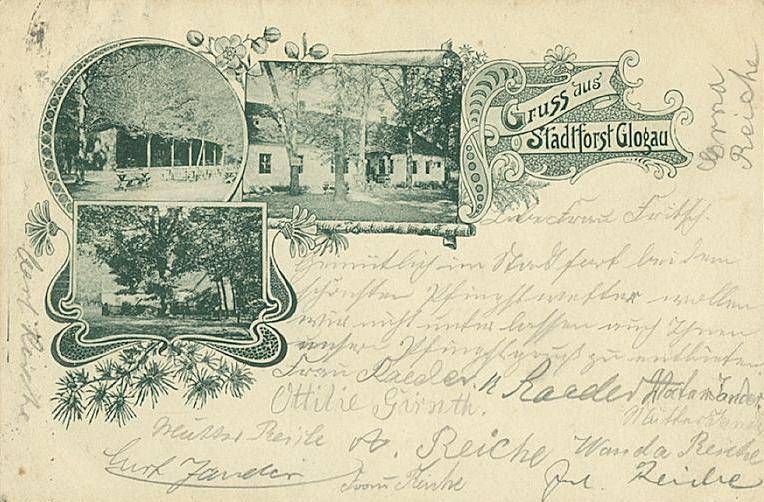 Gruss aus
Stadtforst Glogau
Erna
Reiche
Liebe Frau Fritsch.
Gemütlich im Stadtforst bei dem
schönsten Pfingstwetter wollen
wir nicht unterlassen auch Ihnen
unsern Pfingstgruß zu entbieten
Frau Raeder. Raeder
Ottilie Girnth.
Mutter Reiche A. Reiche Wanda Reiche
Curt Jander Frau
Reiche